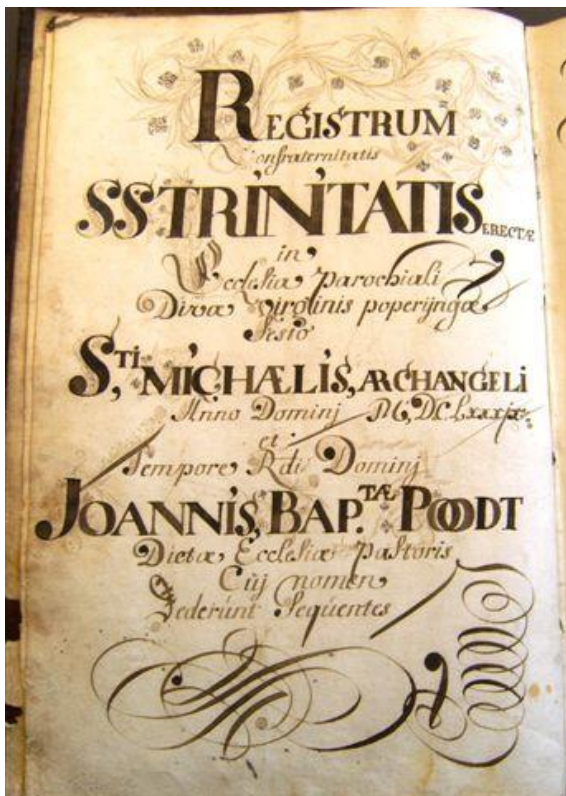 REGISTRUM
Confraternitatis
SS TRINITATIS ERECTÆ
in
Ecclesia Parochiali
Divæ Virginis poperijngæ
festo
S.TI MICHÆLIS, ARCHANGELI
Anno Dominj M, DC Lxxxjx
et
Tempore Rdi Dominj
JOANNIS, BAP.TÆ POODT
Dictæ Ecclesiæ Pastoris
Cuj nomen
Dederunt Sequentes